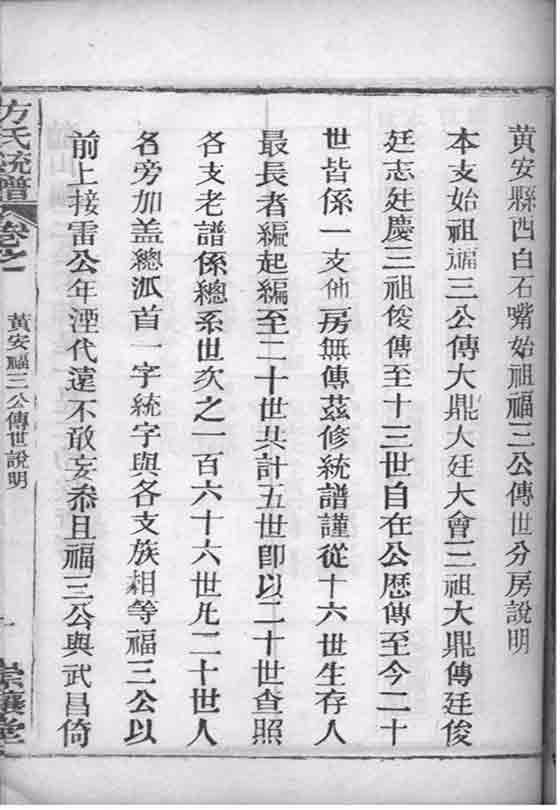 黄安縣西白石嘴始祖福三公傳世分房說明
本支始祖福三公傳大鼎大廷大會三祖大鼎傳廷俊
廷志廷慶三祖俊傳至十三世自在公歷傳至今二十
世皆係一支他房無傳茲修統譜謹從十六世生存人
最長者編起編至二十世共計五世卽以二十世查照
各支老譜係總系世次之一百六十六世凡二十世人
名旁加盖總派首一字統字與各支族相等福三公以
前上接雷公年湮代遠不敢妄叅且福三公與武昌倚
方氏統譜 卷之一 黃安福三公傳世說明 崇讓堂